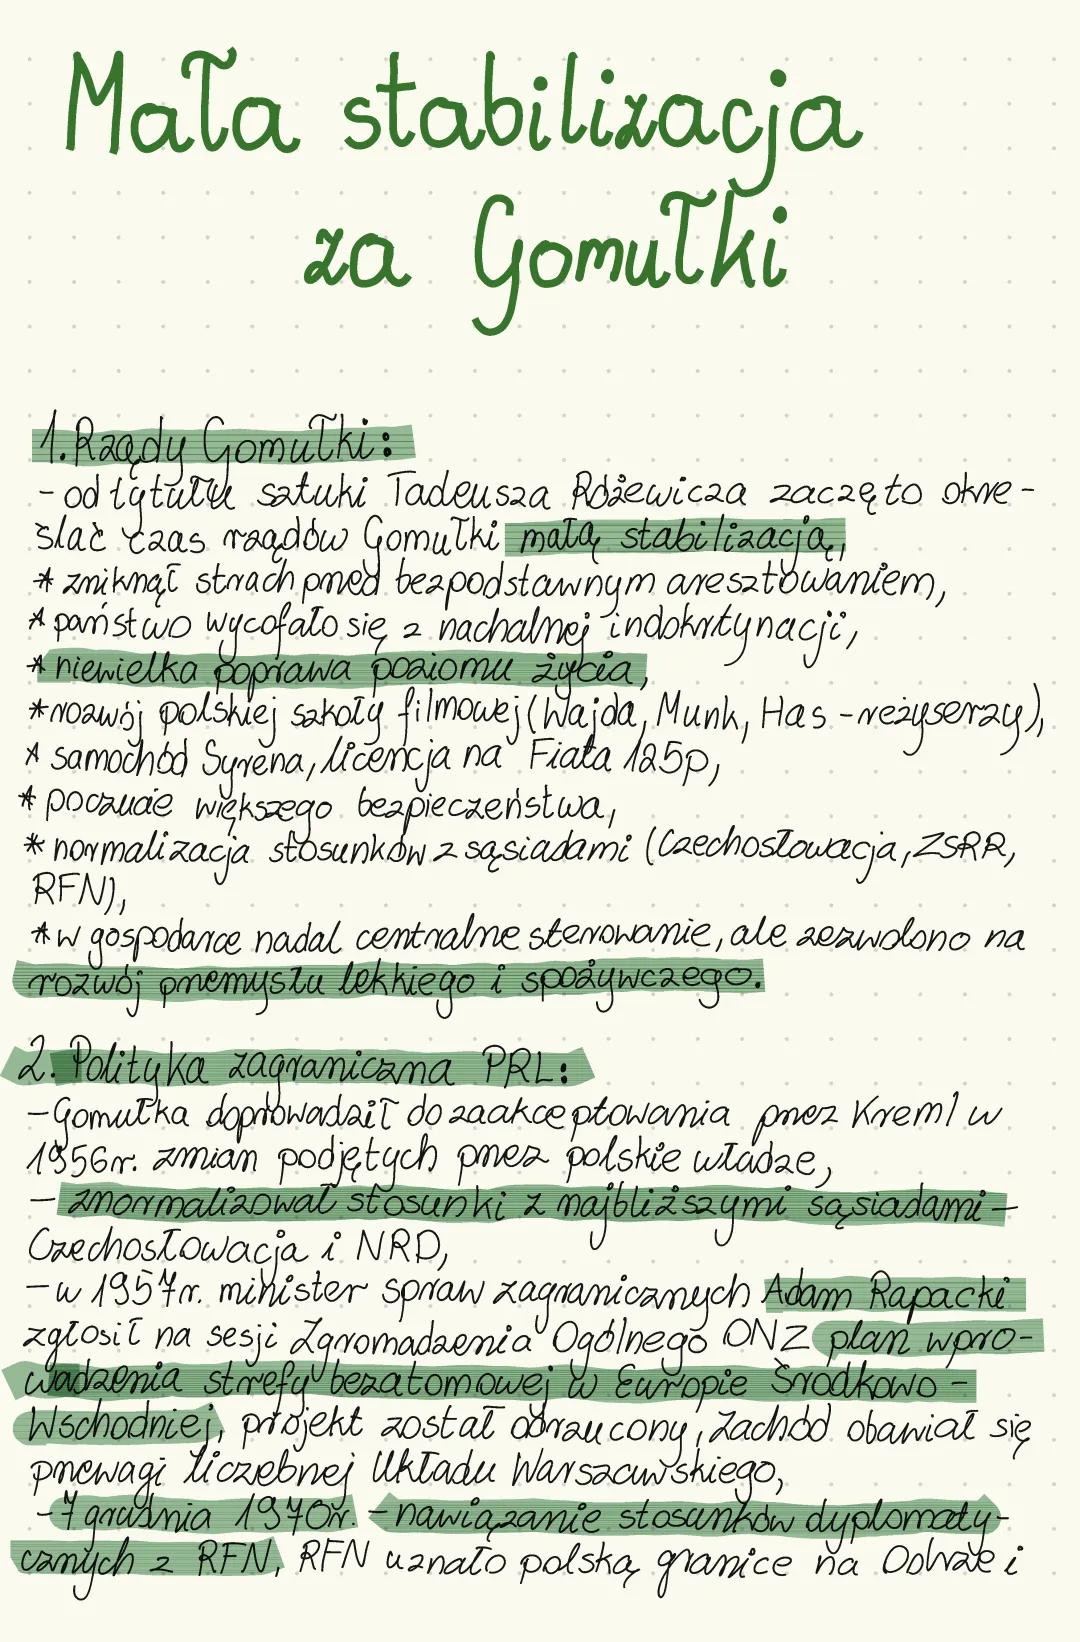 Mała stabilizacja
za Gomułki
1. Rządy Gomułki:
- od tytułu sztuki Tadeusza Różewicza zaczęto okre-
ślać czas rządów Gomułki małą stabilizacją,
* zniknął strach przed bezpodstawnym aresztowaniem,
* państwo wycofało się z nachalnej indokrtynacji,
* niewielka poprawa poziomu życia,
* rozwój polskiej szkoły filmowej (Wajda, Munk, Has - reżyserzy),
* samochód Syrena, licencja na Fiata 125p,
* poczucie większego bezpieczeństwa,
* normalizacja stosunków z sąsiadami (Czechosłowacja, ZSRR,
RFN),
* w gospodarce nadal centralne sterowanie, ale zezwolono na
rozwój przemysłu lekkiego i spożywczego.
2. Polityka zagraniczna PRL:
- Gomułka doprowadził do zaakceptowania przez Kreml w
1956r. zmian podjętych przez polskie władze,
- znormalizował stosunki z najbliższymi sąsiadami -
Czechosłowacja i NRD,
- w 1957r. minister spraw zagranicznych Adam Rapacki
zgłosił na sesji Zgromadzenia Ogólnego ONZ plan wpro-
wadzenia strefy bezatomowej w Europie Środkowo -
Wschodniej, projekt został odrzucony, Zachód obawiał się
przewagi liczebnej Układu Warszawskiego,
- 7 grudnia 1970r. - nawiązanie stosunków dyplomaty-
cznych z RFN, RFN uznało polską granice na Odrze i